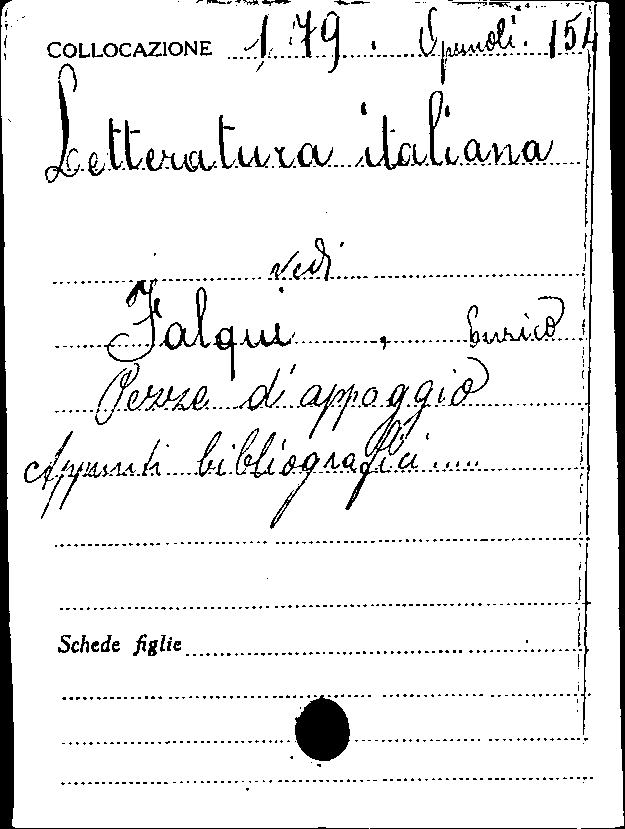 COLLOCAZIONE 1, 79. Opuscoli. 154
Letteratura italiana
vedi
Falqui, Enrico
Pezze d'appoggio
Appunti bibliografici.....
Schede figlie